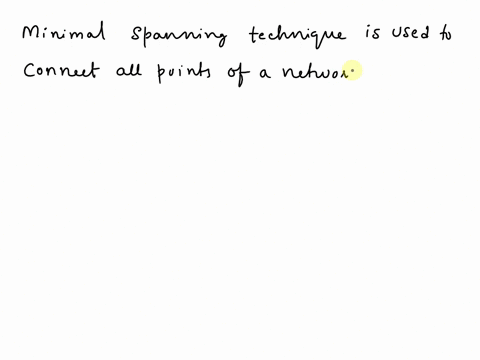 Minimal spanning technique is used to
Connect all points of a networ